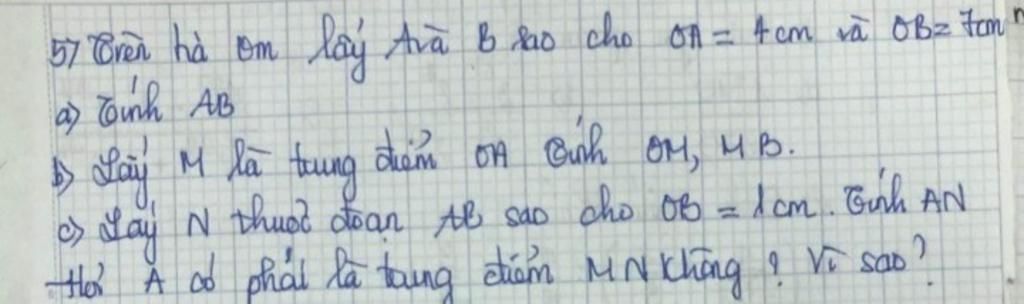 5) Trên hà Om lấy A và B sao cho OA = 4cm và OB = 7cm
a) Tính AB
b) Lấy M là trung điểm OA Tính OM, MB.
c) Lấy N thuộc đoạn AB sao cho OB = 1cm. Tính AN
Hỏi A có phải là trung điểm MN không? Vì sao?